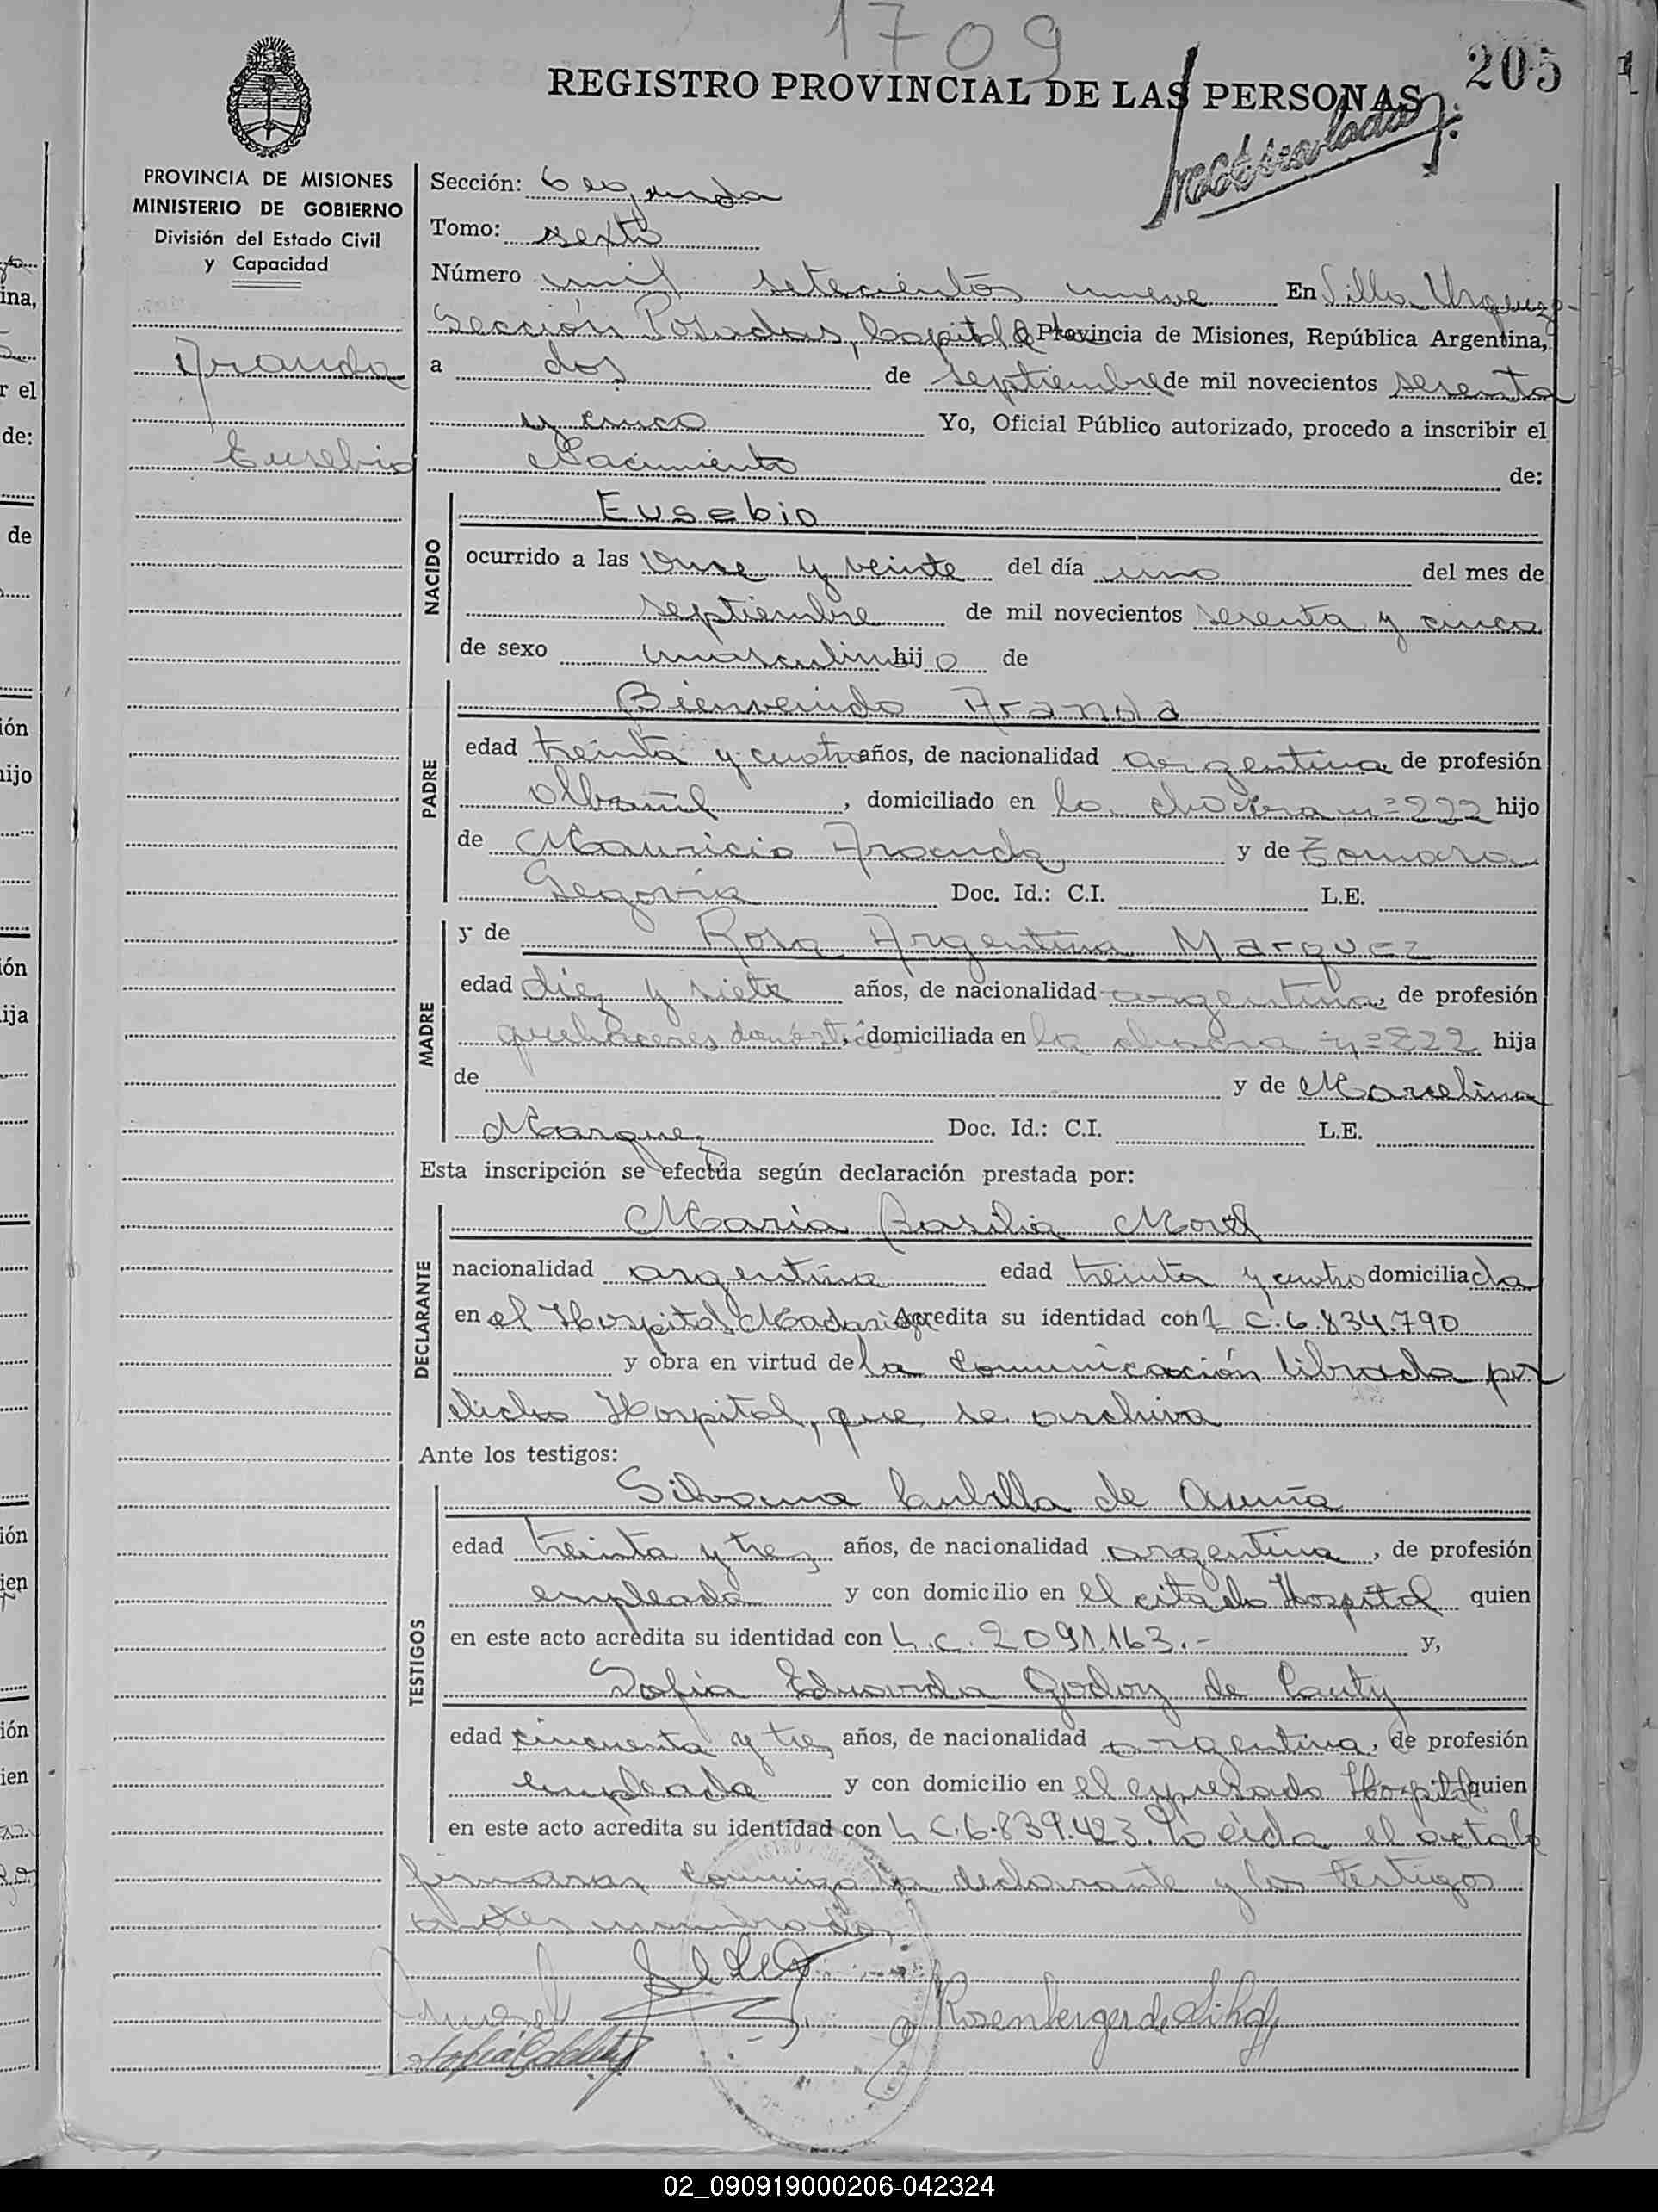 1709
205
REGISTRO PROVINCIAL DE LAS PERSONAS
PROVINCIA DE MISIONES
MINISTERIO DE GOBIERNO
División del Estado Civil
y Capacidad
Aranda
Eusebio
Sección: Segunda
Tomo: sexto
Número mil setecientos nueve En Villa Urquiza
Sección Posadas, Capital de Provincia de Misiones, República Argentina,
a dos de septiembre de mil novecientos sesenta
y cinco Yo, Oficial Público autorizado, procedo a inscribir el
Nacimiento de:
NACIDO
Eusebio
ocurrido a las once y veinte del día uno del mes de
septiembre de mil novecientos sesenta y cinco
de sexo masculino hijo de
PADRE
Bienvenido Aranda
edad treinta y cuatro años, de nacionalidad argentina de profesión
albañil, domiciliado en la chacra nº 222 hijo
de Mauricio Aranda y de Tomasa
Segovia Doc. Id.: C.I. L.E.
MADRE
y de Rosa Argentina Marquez
edad diez y siete años, de nacionalidad argentina, de profesión
quehaceres domésticos, domiciliada en la chacra nº 222 hija
de y de Marcelina
Marquez Doc. Id.: C.I. L.E.
Esta inscripción se efectúa según declaración prestada por:
DECLARANTE
María Basilia
nacionalidad argentina edad treinta y cuatro domiciliada
en el Hospital Madariaga Acredita su identidad con L C. 6.834.790
y obra en virtud de la comunicación librada por
dicho Hospital, que se archiva
Ante los testigos:
TESTIGOS
Silvana Cubilla de Acuña
edad treinta y tres años, de nacionalidad argentina, de profesión
empleada y con domicilio en el citado Hospital quien
en este acto acredita su identidad con L.C. 2091.163.- y,
Sofia Eduarda Godoy de
edad cincuenta y tres años, de nacionalidad argentina, de profesión
empleada y con domicilio en el expresado Hospital quien
en este acto acredita su identidad con L C. 6.839.423. Leída el acta la
firmaron conmigo la declarante y los testigos
antes nombrados
Rosenberger de
02_090919000206-042324